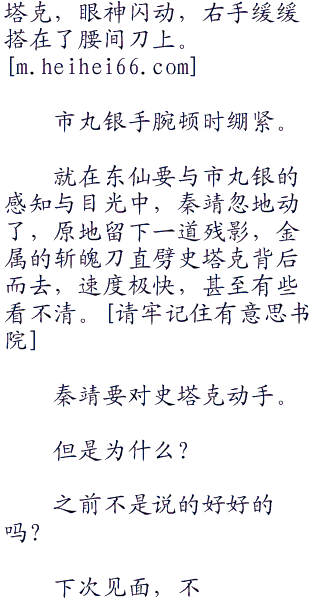 塔克，眼神闪动，右手缓缓
搭在了腰间刀上。
[m.heihei66.com]
市丸银手腕顿时绷紧。
就在东仙要与市丸银的
感知与目光中，秦靖忽地动
了，原地留下一道残影，金
属的斩魄刀直劈史塔克背后
而去，速度极快，甚至有些
看不清。[请牢记住有意思书
院]
秦靖要对史塔克动手。
但是为什么？
之前不是说的好好的
吗？
下次见面，不